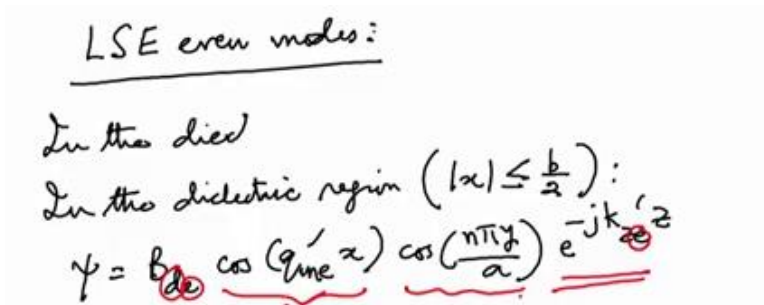 LSE even modes:
In the died
In the dielectric region (|x| ≤ b/2):
ψ = B_de cos(q'_me x) cos(nπy/a) e^{-jk'_ze z}